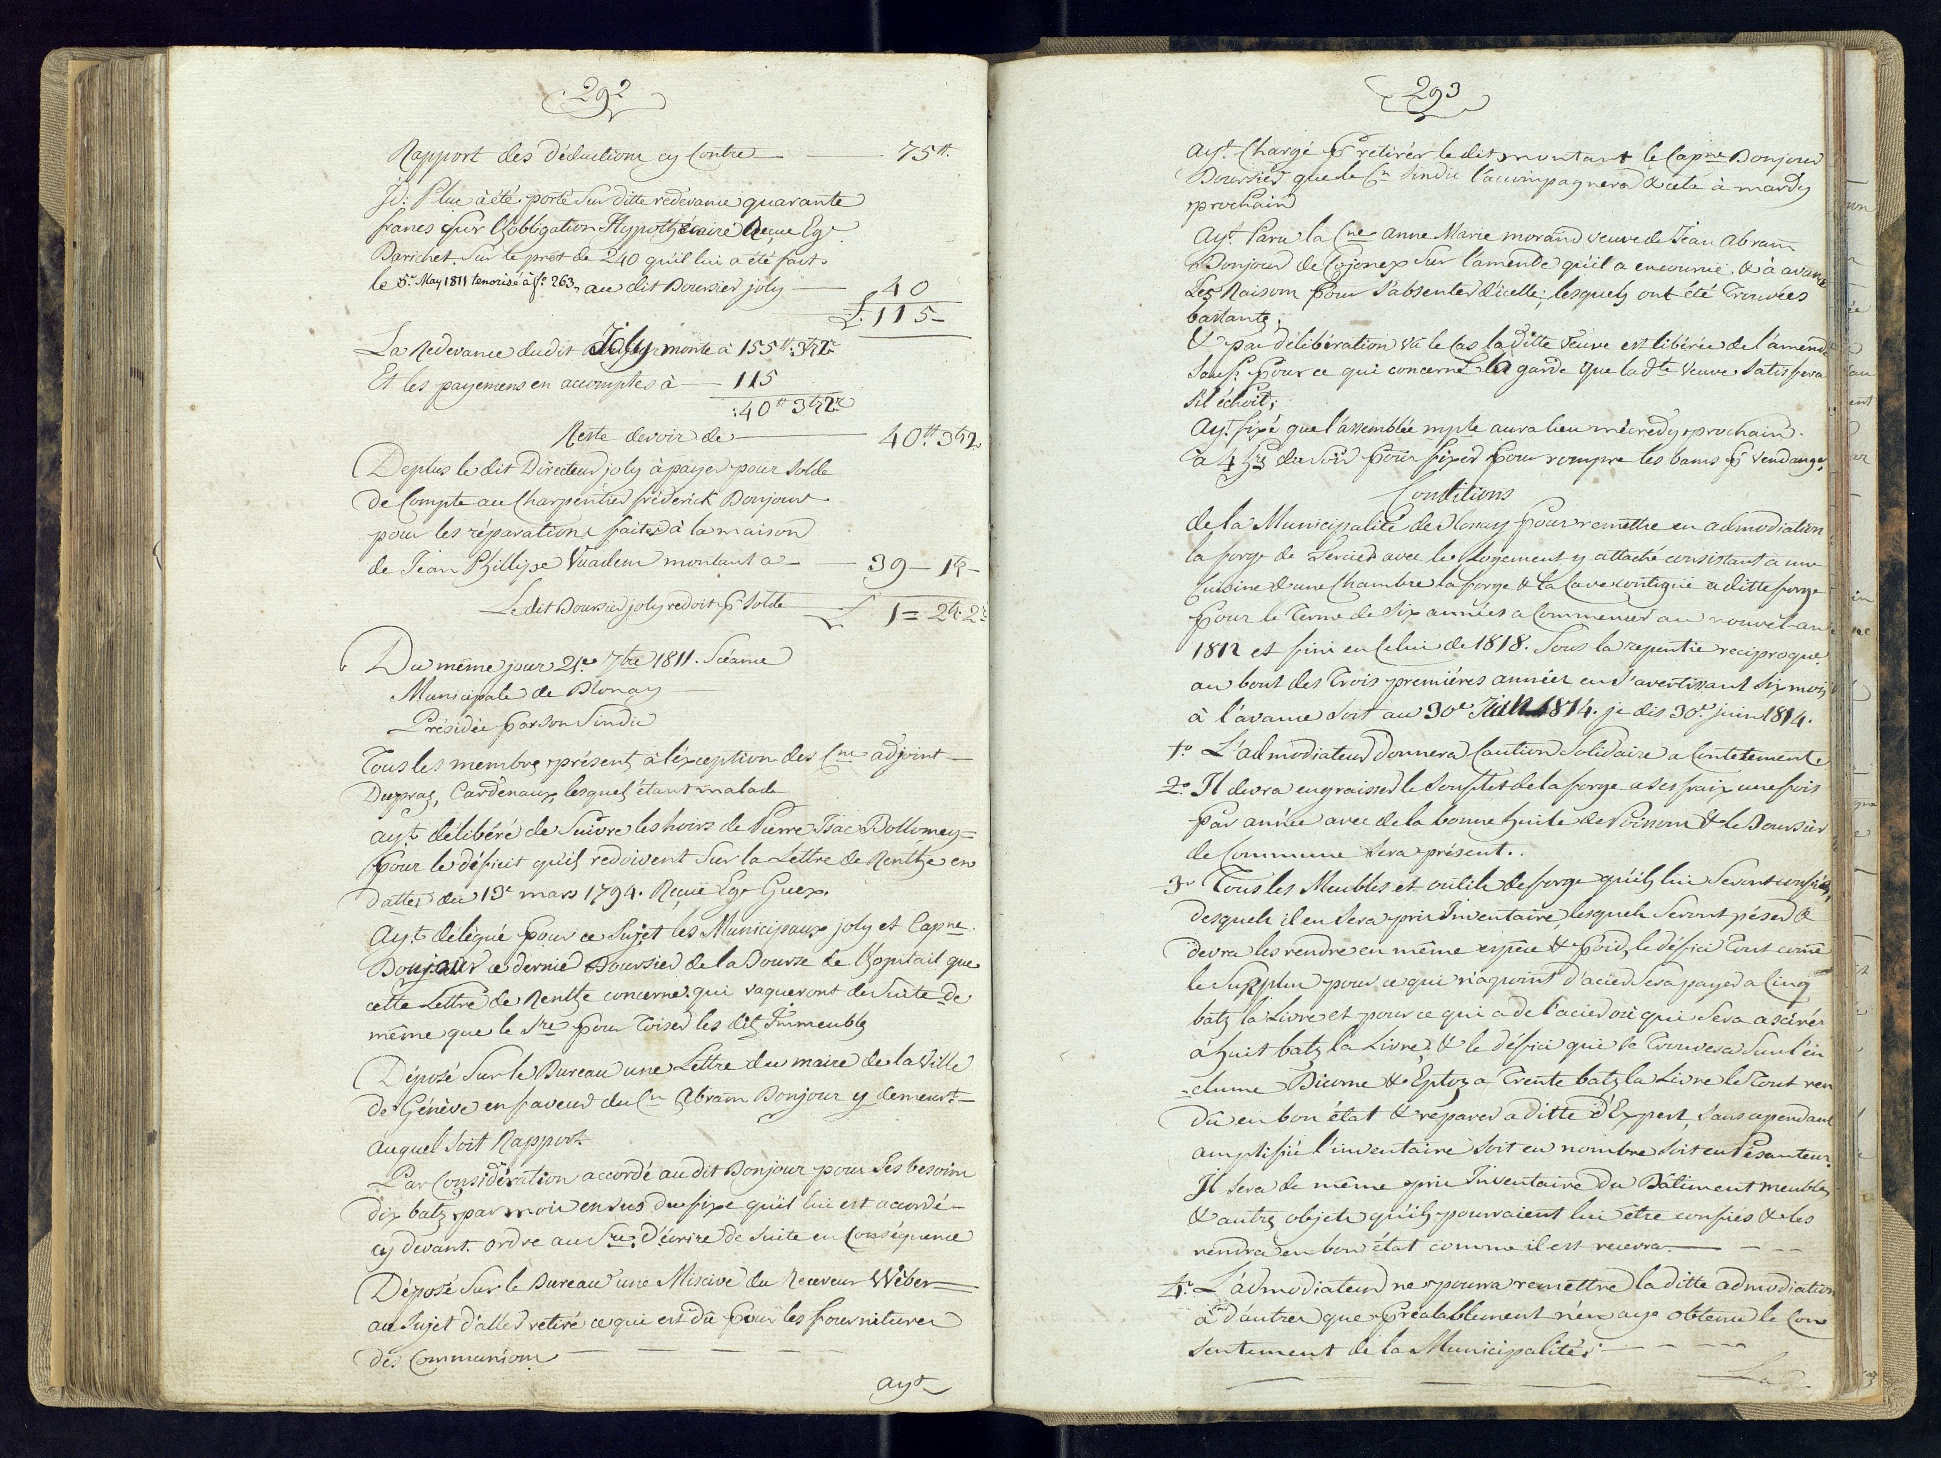 292
Rapport des déductions cy Contre — 75 tt.
Id: Plus a été porté Sur ditte redevance quarante
francs sur l'obligation Hypothécaire Reçue Eg.
Barichet. Sur le prêt de 240 qu'il lui a été fait.
le 5e. May 1811 tenorisé à f°. 263, au dit Boursier joly — 40
£. 115 —
La Redevance dudit Joly monte à 155 tt. 3 bz 2 r
Et les payemens en accomptes à — 115
: 40 tt 3 bz 2 r
Reste devoir de — 40 tt. 3 bz 2
Deplus le dit Directeur joly à payer pour Solde
de Compte au Charpentier fréderick Bonjour
pour les réparations faites à la maison
de Jean Phillipe Vuadens montant a — 39 — 1 bz —
Ledit Boursier joly redoit pr Solde — £ 1 = 2 bz. 2 r
Du même jour 21e 7bre 1811. Séance
Municipale de Blonay —
Présidée par son Sindic
Tous les membres présents à l'éxception des Cns adjoint —
Dupraz, Cardenaux, lesquels étant malade
ayt. délibéré de Suivre les hoirs de Pierre Isac Bollomey =
pour le déficit qu'ils redoivent Sur la Lettre de Renthe en
datte du 13e mars 1794. Reçue Eg. Guex.
Ayt. délégué pour ce Sujet les Municipaux joly et Capne.
Bonjour ce dernié Boursier de la Bourse de l'hopitail que
cette Lettre de Renthe concerne. qui vaqueront de Suite de
même que le Sre pour Toiser les dits Immeubles
Déposé Sur le Bureau une Lettre du maire de la Ville
de Génève en faveur du Cn Abram Bonjour y demeurt. —
auquel Soit Rapport.
Par Considération accordé au dit Bonjour pour Ses besoins
dix batz par mois en sus du fixe qu'il lui est accordé —
cy devant. ordre au Sre. d'écrire de Suite en Conséquence
Déposé Sur le Bureau une Miscive du Receveur Wéber =
au Sujet d'aller retiré ce qui est dû pour les fournitures
des Communions — — — — —
ayt
293
ayt. Chargé pr retirér ledit montant le Capne Bonjour
Boursier que le Cn Sindic l'accompagnera & cela à mardy
prochain
Ayt. Paru la Cne anne Marie morand veuve de Jean Abram
Bonjour de Cojonex Sur l'amende qu'il a encourue. & à avancé
Les Raisons pour S'absenter d'icelle; lesquels ont été Trouvées
bastantes;
& par délibération vû le Cas la ditte Veuve est libérée de l'amende
Sauf pour ce qui concerne la garde que la dte Veuve Satisfera
S'il échoit;
Ayt. fixé que l'assemblée mple aura lieu mécredy prochain.
à 4 hrs du Soir pour fixer pour rompre les bans pr Vendanges
Conditions
de la Municipalité de Blonay pour remettre en admodiation
la forge de Tercier avec le Logement y attaché consistant a une
Cuisine & une Chambre la forge & la Cave contigüe a ditte forge
pour le Terme de Six années a Commencer au nouvel-an
1812 et fini en Celui de 1818. Sous la repentie reciproque.
au bout des Trois premiéres années en S'avertissant Six mois
à l'avance Soit au 30e Juin 1814. je dis 30e. juin 1814.
1°. L'admodiateur donnera Caution Solidaire a Contetement
2°. Il devra engraisser le Souflet de la forge a Ses fraix une fois
Par année avec de la bonne huile de Poisson & le Boursier
de Commune Sera présent..
3° Tous les Meubles et outils de forge qu'ils lui Seront confiés,
desquels il en Sera pris Inventaire, lesquels Seront péser &
devra les rendre en même espèce & poid, le défici Tout come
le Surplus pour ce qui n'a point d'acier Sera payer a Cinq
batz la Livre et pour ce qui a de l'acier ou qui Sera acirér
à huit batz la Livre, & le défici qui se Trouvera Sur l'én
-clume Bicorne & Eptoz a Trente batz la Livre le Tout ren
dû en bon état & réparer a ditte d'Expert, Sans cependant
amplifié l'inventaire Soit en nombre Soit en Pésanteur.
Il Sera de même pris Inventaire du Bâtiment meubles
& autres objets qu'ils pourraient lui être confiés & les
rendra en bon état comme il est recevra. — — —
4°. L'admodiateur ne pourra remettre la ditte admodiation
à d'autres que préalablement n'en aye obtenu le Con
sentement de la Municipalité; — — —
La